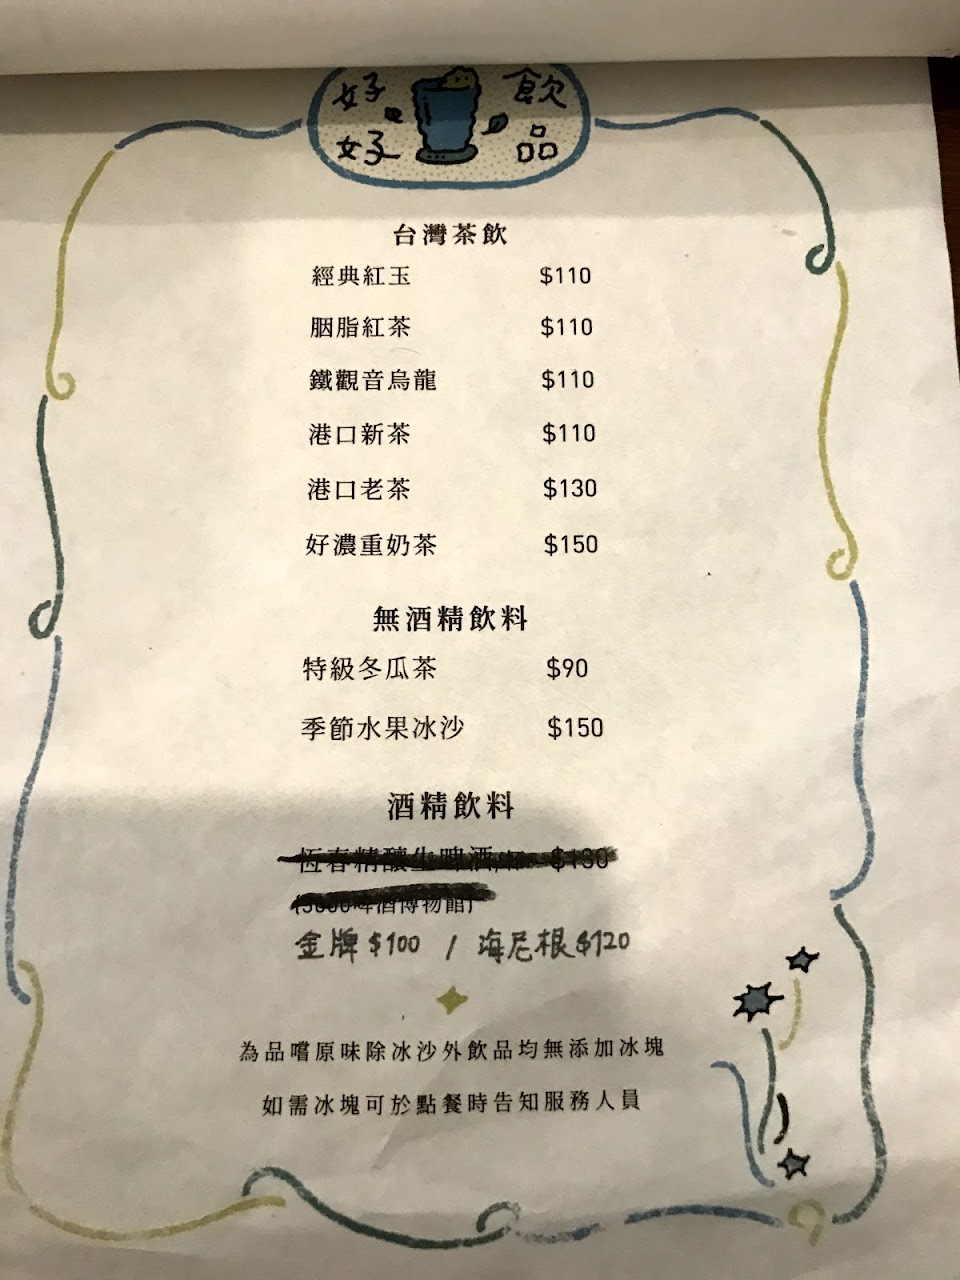 好好飲品
台灣茶飲
經典紅玉 $110
胭脂紅茶 $110
鐵觀音烏龍 $110
港口新茶 $110
港口老茶 $130
好濃重奶茶 $150
無酒精飲料
特級冬瓜茶 $90
季節水果冰沙 $150
酒精飲料
恆春精釀生啤酒 $130
(3000啤酒博物館)
金牌 $100 / 海尼根 $120
為品嚐原味除冰沙外飲品均無添加冰塊
如需冰塊可於點餐時告知服務人員